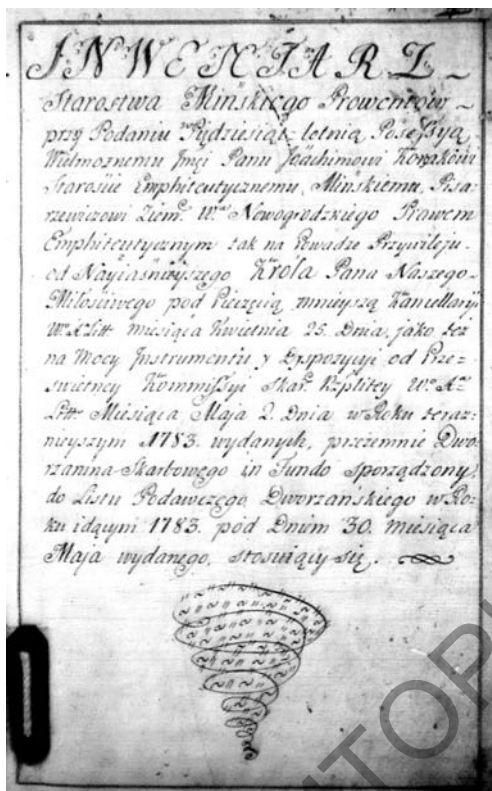 INWENTARZ
Starostwa Mińskiego Prowentow
przy Podaniu Pędziesiąt-letnią Possessyą
Wielmożnemu Jmći Panu Joachimowi
Starośćie Emphiteutycznemu Mińskiemu, Pisa-
rzewiczowi Ziem: Wa Nowogrodzkiego Prawem
Emphiteutycznym tak na Przywileju
od Nayiaśnieyszego Króla Pana Naszego
Miłościwego pod Pieczęcią mnieyszą Kancellaryi
miesiąca Kwietnia 25. Dnia, jako też
na Mocy Jnstrumentu y Expozycyi od Prze-
świetney Kommissyi Skar: Rzplitey
Litt: Miesiąca Maja 2. Dnia w Roku teraz-
nieyszym 1783. wydanych, przezemnie Dwo-
rzanina Skarbowego in Fundo sporządzony
do Listu Podawczego Dworzańskiego w Ro-
ku idącym 1783. pod Dniem 30. miesiąca
Maja wydanego, stosuiący się.